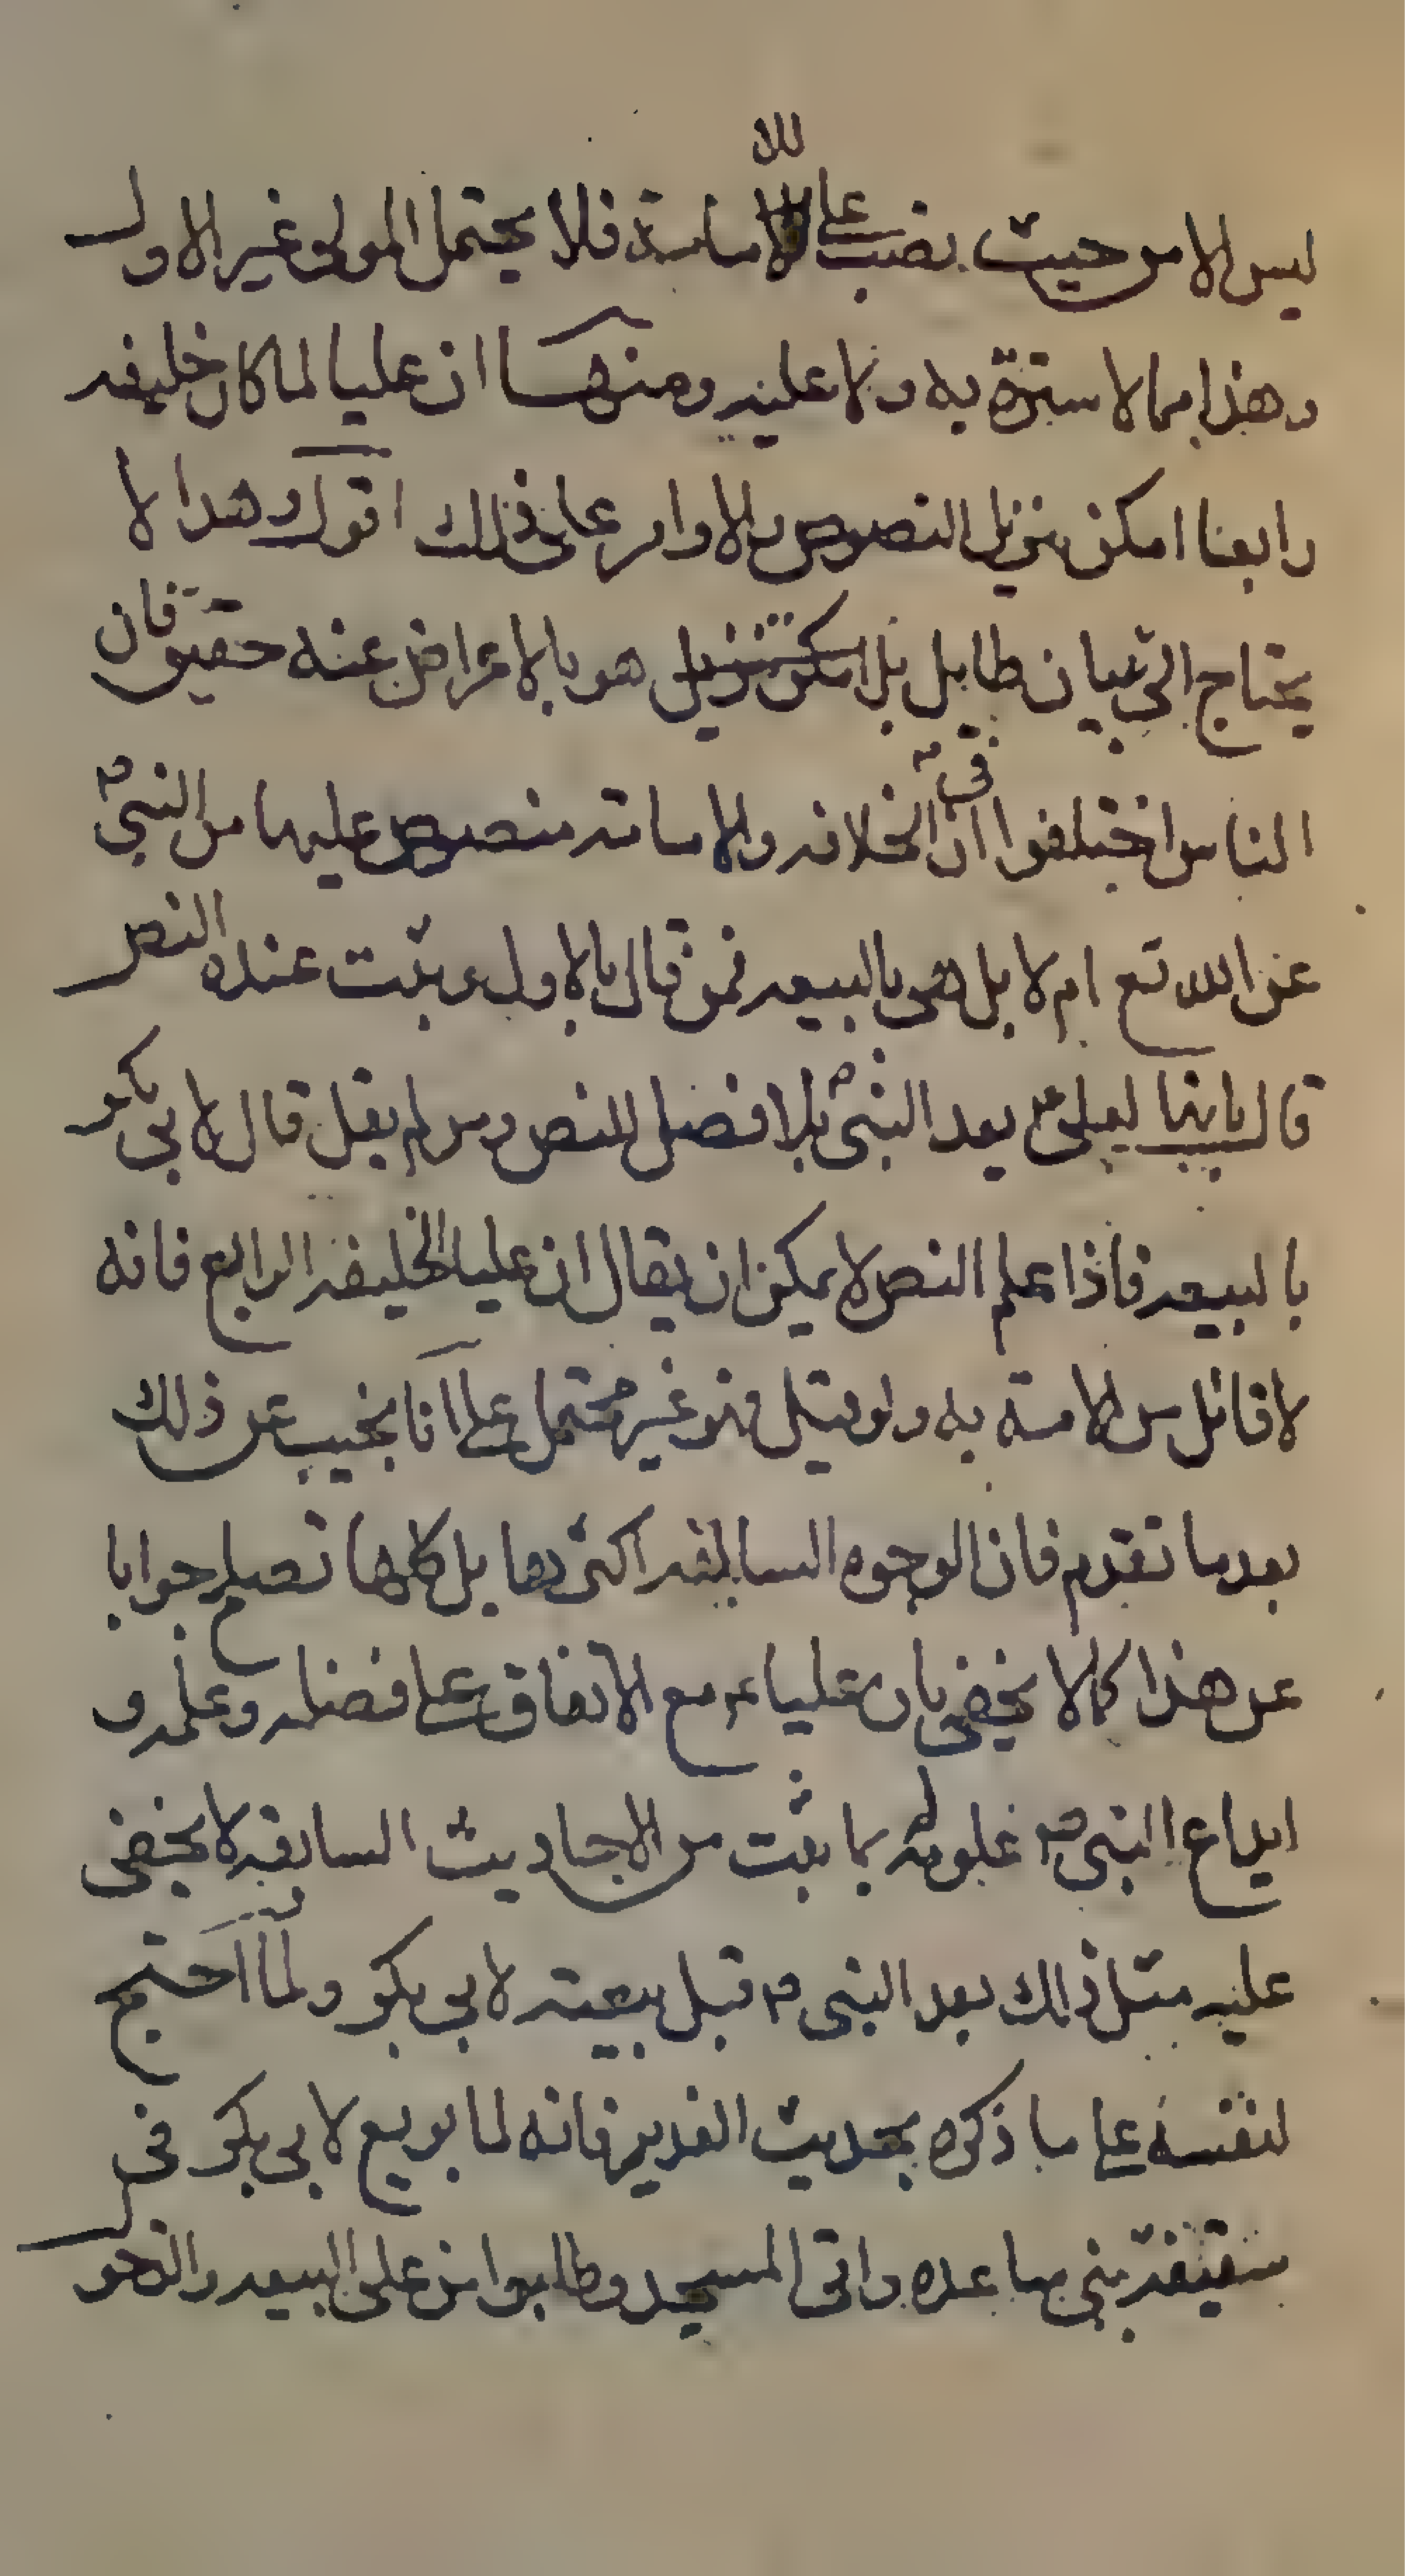 ليس الا من حيث نصب على للامامة فلا يحتمل المولى غير الاول
وهذا مما لا سترة به ولا عليه ومنها ان عليا لما كان خليفه
رابعا امكن تنزيل النصوص والاوامر على ذلك اقول وهذا لا
يحتاج الى بيان طايل بل هو بالاعراض عنه حقيق فان
الناس اختلفوا فى ان الخلافه والامامه منصوص عليها من النبى ص
عن الله تع ام لا بل هى بالبيعه فمن قال بالاول وثبت عنده النص
قال بانها لعلى ع بعد النبى ص بلا فصل للنص ومن لم يقل قال لابى بكر
بالبيعه فاذا علم النص لا يمكن ان يقال ان عليا الخليفه الرابع فانه
لا قائل من الامة به ولو قيل فهو غير محتمل على انا نجيب عن ذلك
بعد ما تقدم فان الوجوه السابقه اكثرها بل كلها تصلح جوابا
عن هذا كما لا يخفى بان عليا ع مع الاتفاق على فضله وعلمه و
ايداع النبى ص علومه له بما ثبت من الاحاديث السابقه لا يخفى
عليه مثل ذلك بعد النبى ص قبل بيعته لابى بكر ولما احتج
لنفسه على ما ذكره بحديث الغدير فانه لما بويع لابى بكر فى
سقيفه بنى ساعده واتى المسجد وطلبوا من على البيعه والدخو